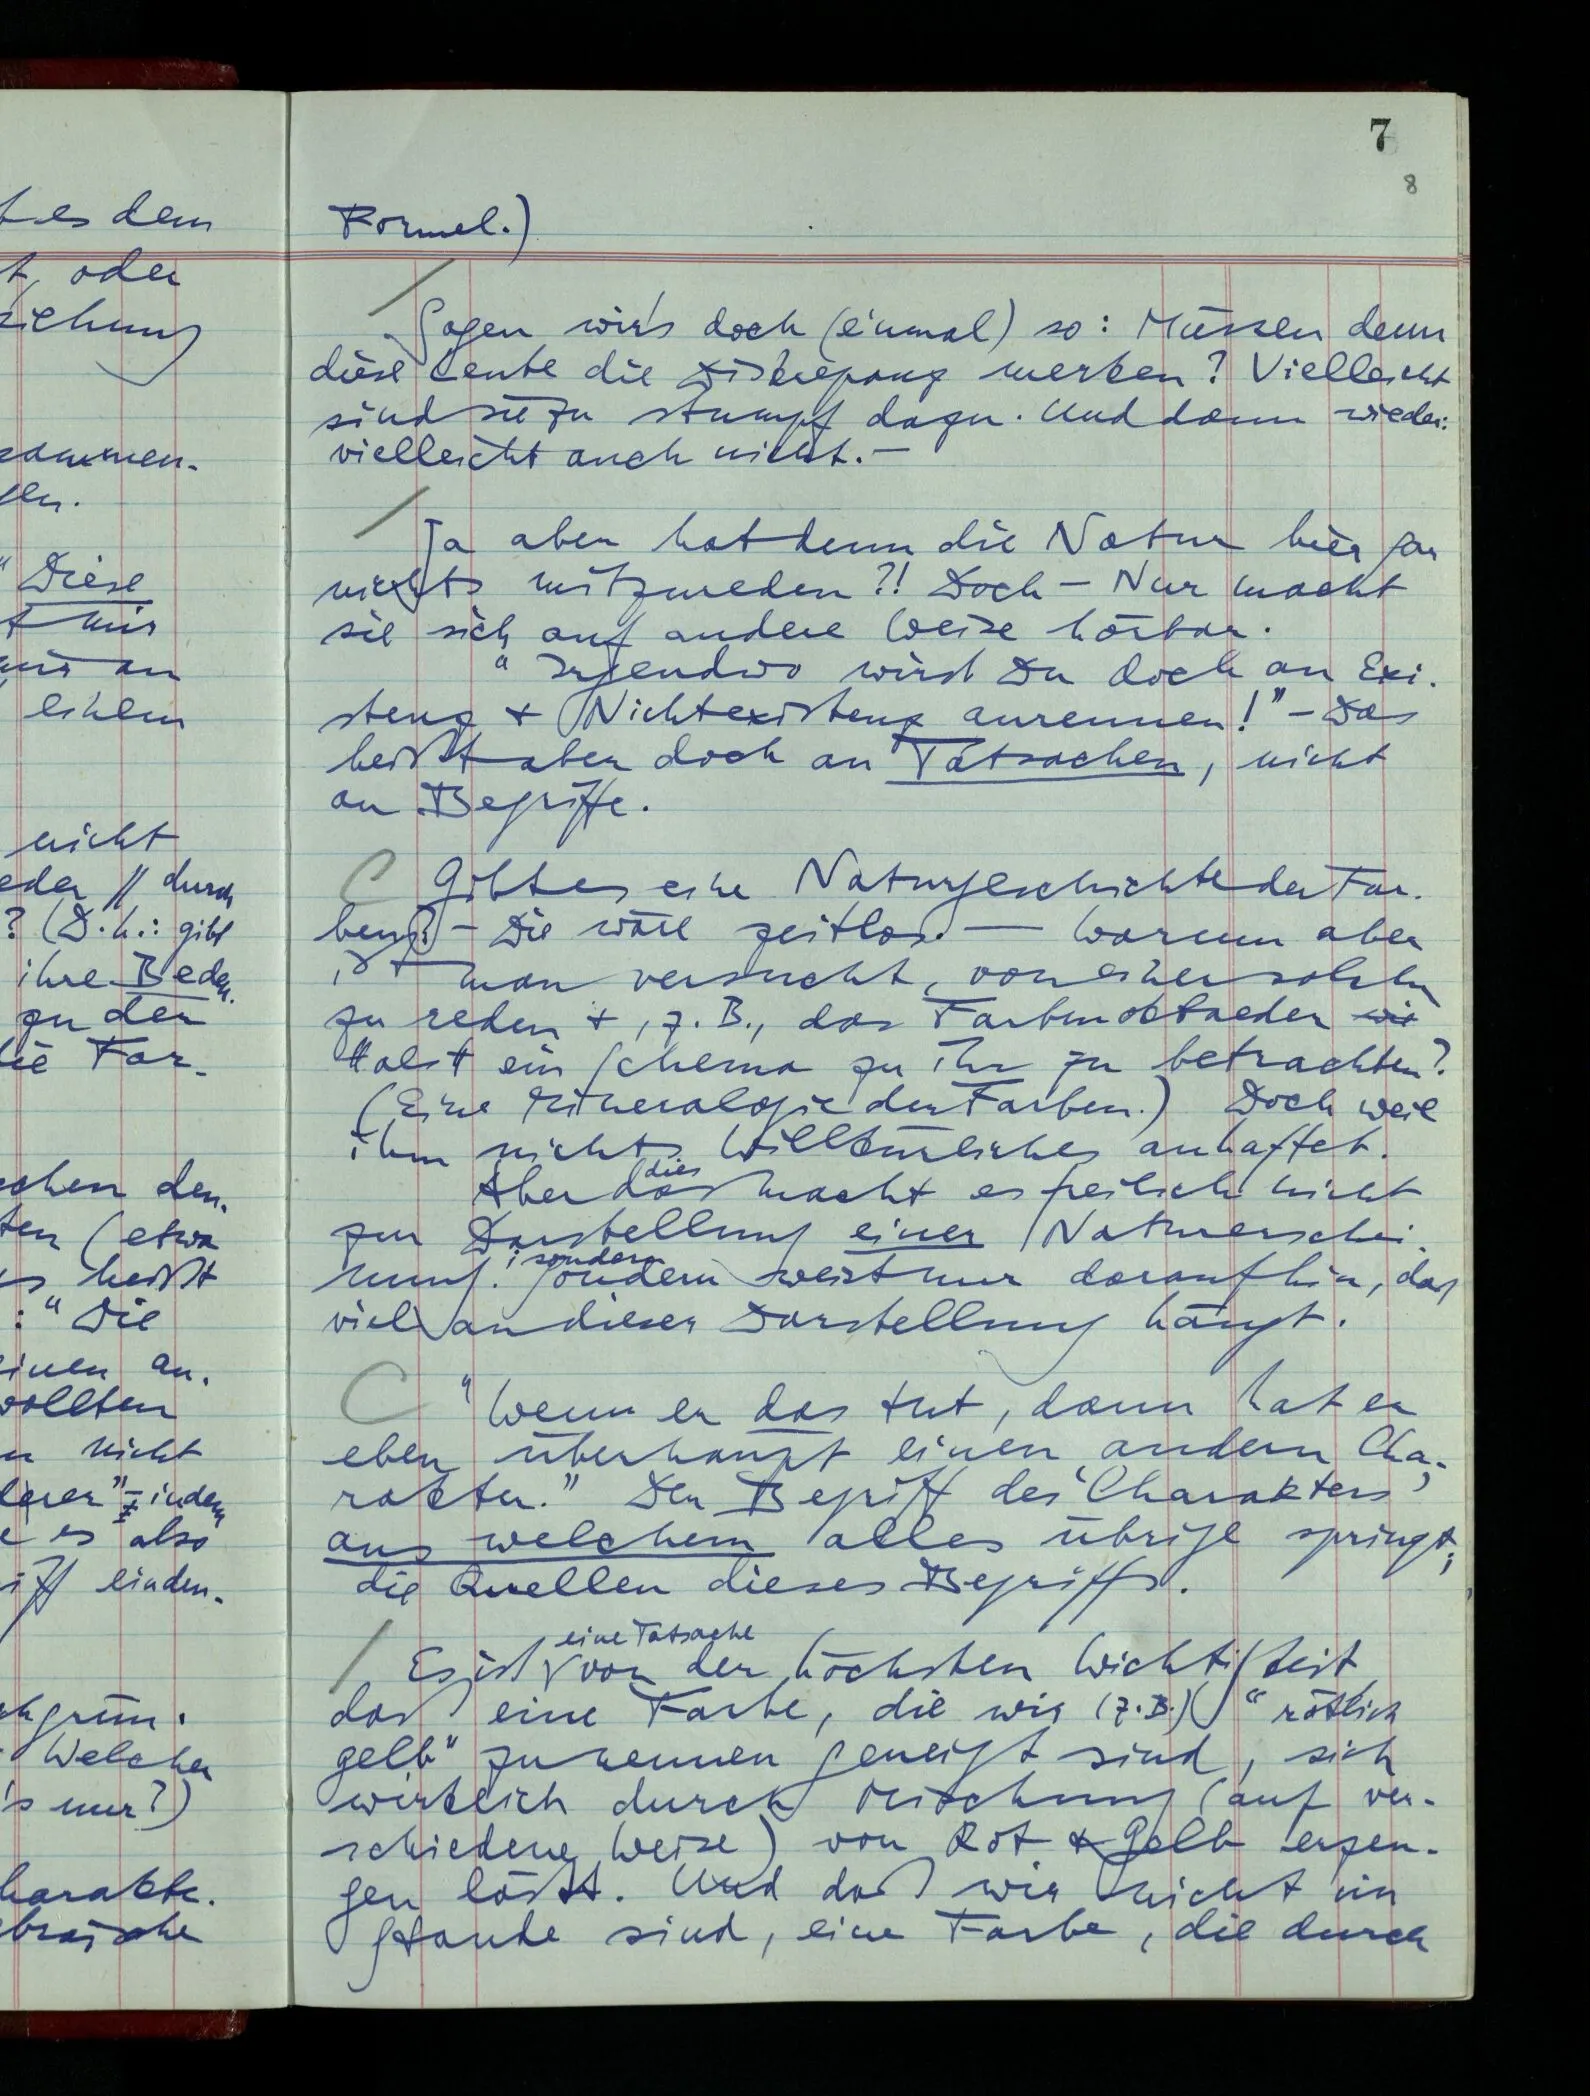 7
8
t es dem
t, oder
ziehung
sammen-
len.
" Diese
t mir
mir an
einem
nicht
eder // durch
? (D.h.: gibt
ihre Bedeu.
zu der
die Far-
schen den.
ten (etwa
es heißt
: " Die
einen an.
wollten
nicht
derer" – indem
e es also
iff einden.
chgrün.
Welcher
's nur?)
harakte.
bräische
Formel.)
Sagen wir's doch (einmal) so: Müssen denn
diese Leute die Diskrepanz merken? Vielleicht
sind sie zu stumpf dazu. Und dann wieder:
vielleicht auch nicht. –
Ja aber hat denn die Natur hier gar
nichts mitzureden?! Doch – Nur macht
sie sich auf andere Weise hörbar.
" Irgendwo wirst Du doch an Exi-
stenz + Nichtexistenz anrennen!" – Das
heißt aber doch an Tatsachen, nicht
an Begriffe.
Gibt es eine Naturgeschichte der Far-
ben? – Die wäre zeitlos. — Warum aber
ist man versucht, von einer solchen
zu reden +, z.B., das Farbenoktaeder wie
"als" ein Schema zu ihr zu betrachten?
(Eine Mineralogie der Farben.) Doch weil
ihm nichts Willkürliches anhaftet.
dies
Aber das macht es freilich nicht
zur Darstellung einer Naturerschei-
; sondern
nung. Sondern weist nur darauf hin, daß
viel an dieser Darstellung hängt.
"Wenn er das tut, dann hat er
eben überhaupt einen andern Cha-
rakter." Der Begriff des 'Charakters'
aus welchem alles übrige springt;
die Quellen dieses Begriffs.
eine Tatsache
Es ist von der höchsten Wichtigkeit
daß eine Farbe, die wir (z.B.) "rötlich
gelb" zu nennen geneigt sind, sich
wirklich durch Mischung (auf ver-
schiedene Weise) von Rot + Gelb erzeu-
gen läßt. Und daß wir nicht im
Stande sind, eine Farbe, die durch